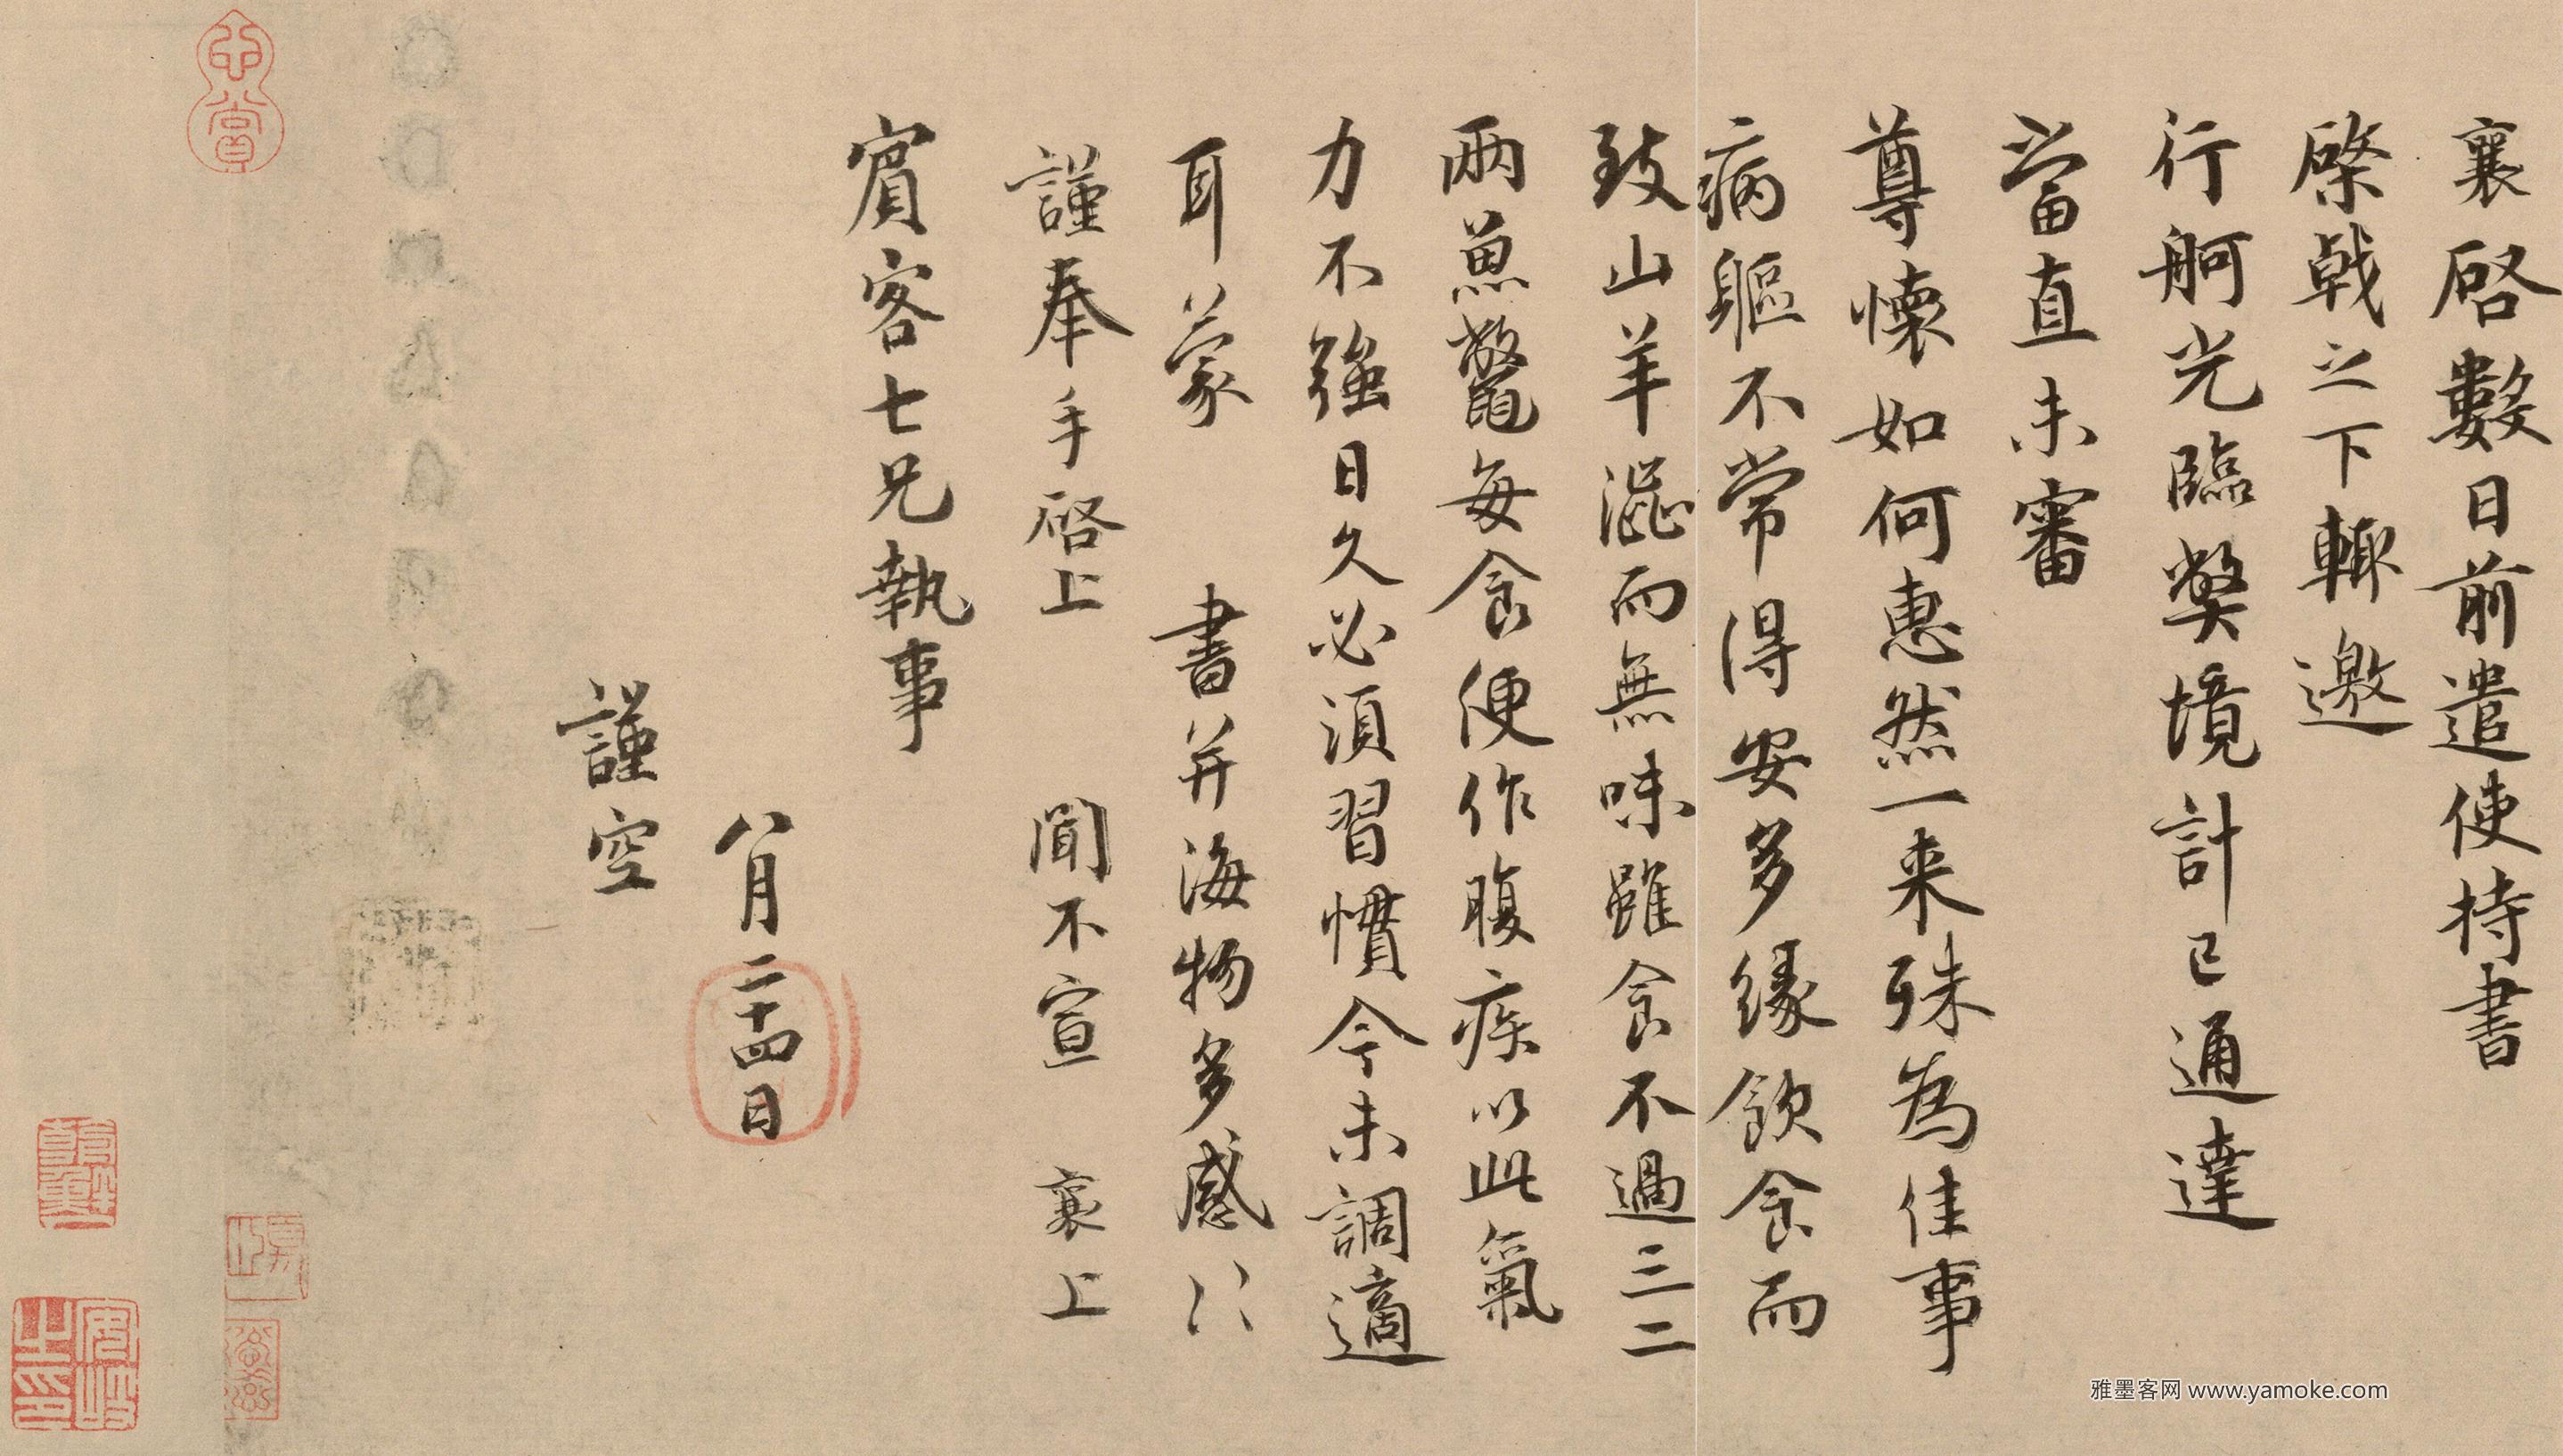 襄啓數日前遣使持書
棨戟之下輙邀
行舸光臨獘境計已通達
當直未審
尊懷如何惠然一来殊為佳事
病軀不常得安多縁飲食而
致山羊澀而無味雖食不過三二
兩魚鼈每食便作腹疾以此氣
力不強日久必須習慣今未調適
耳蒙　書并海物多感〻
謹奉手啓上　聞不宣　襄上
賔客七兄執事
八月二十四日
謹空
雅墨客网 www.yamoke.com